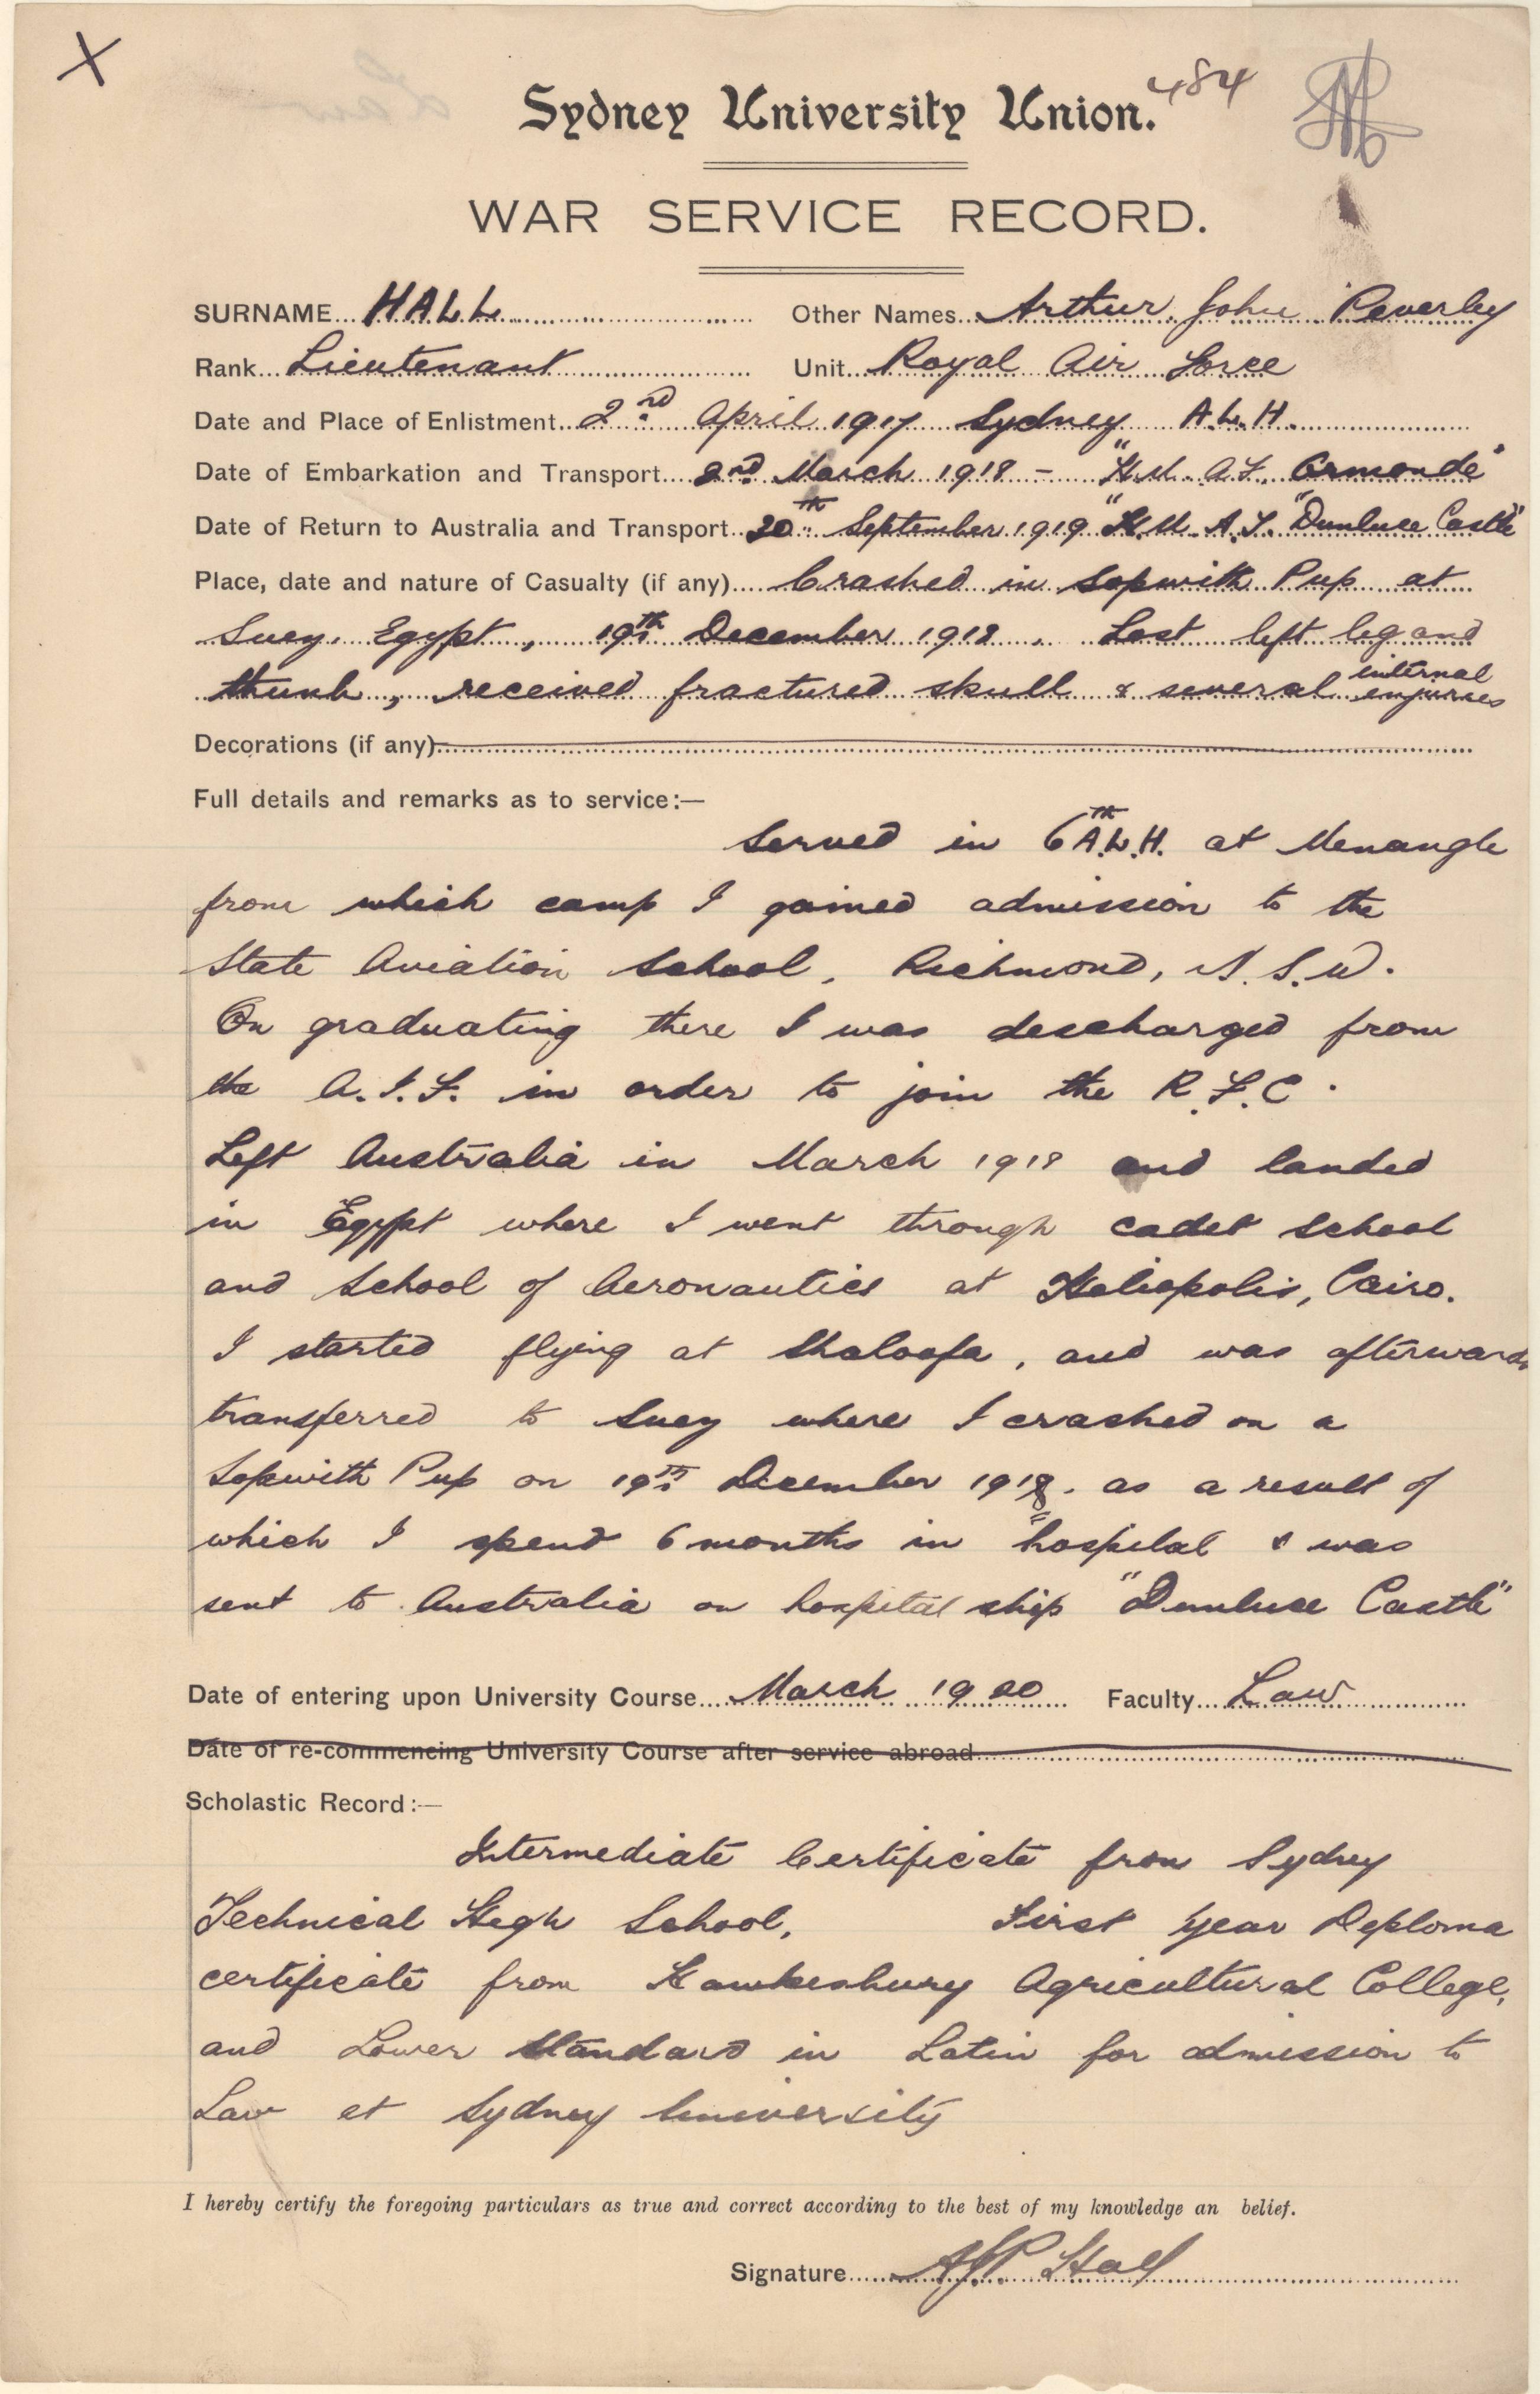 X
484
Sydney University Union.
WAR SERVICE RECORD.
SURNAME... HALL Other Names... Arthur John Peverley
Rank... Lieutenant Unit... Royal Air Force
Date and Place of Enlistment... 2nd April 1917 Sydney A.L.H.
Date of Embarkation and Transport... 2nd March 1918 - "H.M.A.T. Ormonde"
Date of Return to Australia and Transport... 20th September 1919 "H.M.A.T. "Dunluce Castle"
Place, date and nature of Casualty (if any)... Crashed in Sopwith Pup at
Suez, Egypt, 19th December 1918. Lost left leg and
thumb, received fractured skull & several internal enjuries
Decorations (if any)
Full details and remarks as to service:—
Served in 6TH A.L.H. at Menangle
from which camp I gained admission to the
State Aviation School, Richmond, N.S.W.
On graduating there I was descharged from
the A.I.F. in order to join the R.F.C.
Left Australia in March 1918 and landed
in Egypt where I went through cadet school
and School of Aeronautics at Heliopolis, Cairo.
I started flying at Shaloofa, and was afterwards
transferred to Suez where I crashed on a
Sopwith Pup on 19th December 1918. as a result of
which I spend 6 months in hospital & was
sent to Australia on hospital ship "Dunluce Castle"
Date of entering upon University Course... March 1920 Faculty... Law
Date of re-commencing University Course after service abroad
Scholastic Record:—
Intermediate Certificate from Sydney
Technical High School, First year Deploma
certificate from Hawkesbury Agricultural College,
and Lower Standard in Latin for admission to
Law at Sydney University
I hereby certify the foregoing particulars as true and correct according to the best of my knowledge an belief.
Signature... AJP Hall